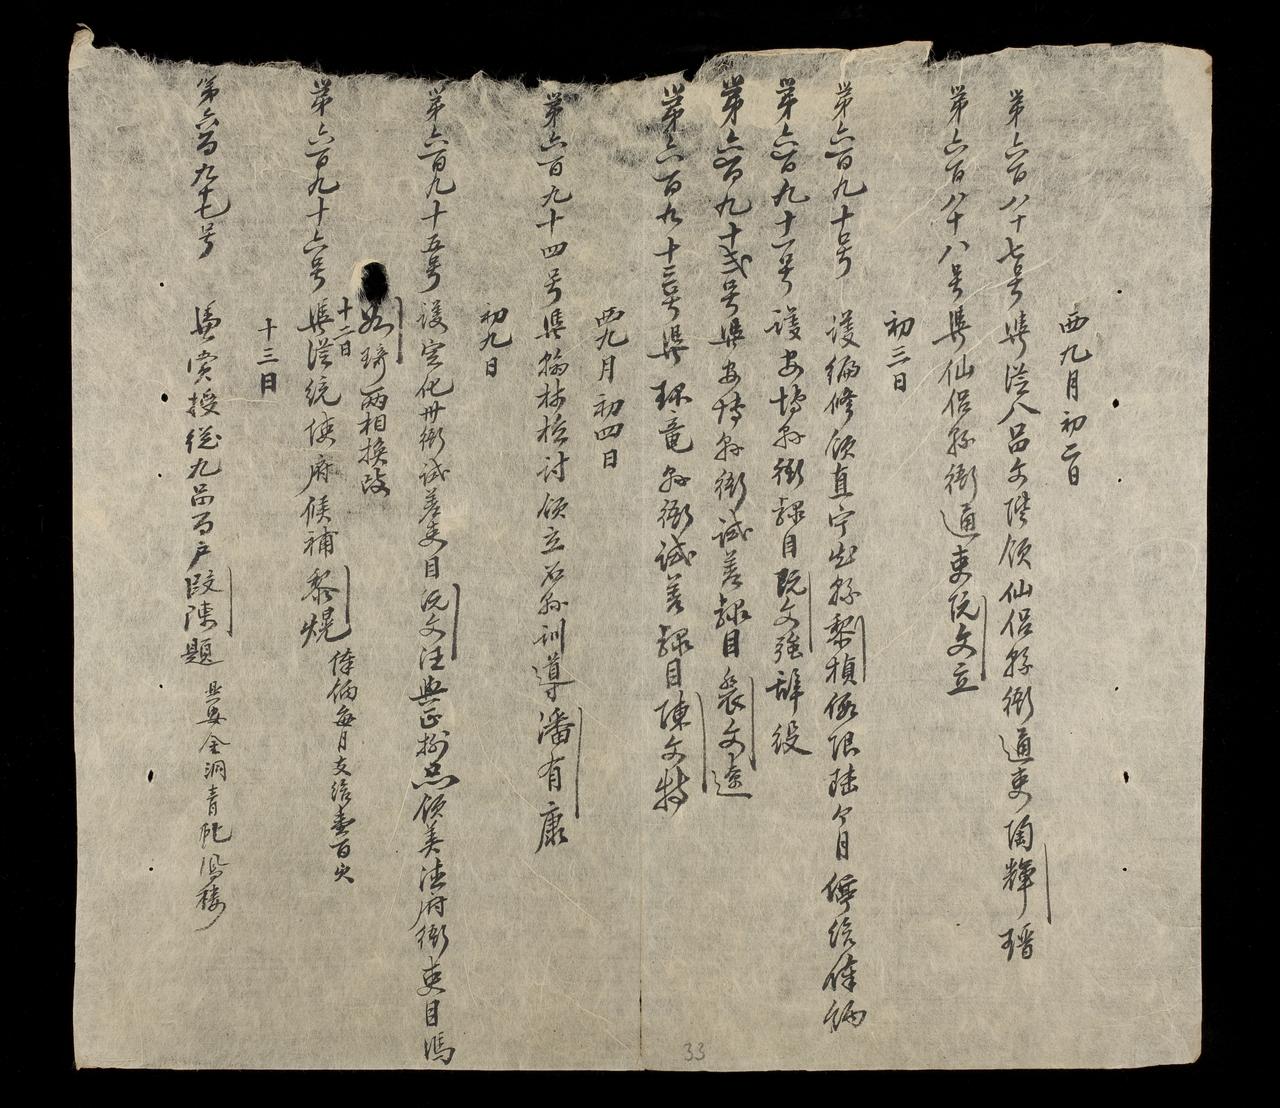 西九月初二日
第六百八十七号 憑從八品文階領仙侶縣衙通吏陶輝瑨
第六百八十八号 憑仙侶縣衙通吏阮文立
初三日
第六百九十号 護編修領直宁縣黎楨假限陸个月停給俸
第六百九十一号 護安博縣衙隸目阮文強辞役
第六百九十弍号憑安博縣衙試差隸目裴文遠
第六百九十三号憑 縣衙試差隸目陳文特
西九月初四日
第六百九十四号憑翰林檢討領立石縣訓導潘有康
初九日
第六百九十五号 護定化州衙試差吏目阮文汪與正捌品領美德府衙吏目馮
如琦兩相換改
十二日
第六百九十六号 憑從統使府候補黎熀 俸每月支給壹百
十三日
第六百九十七号 憑賞授從九品百户段陳題 金洞青
33